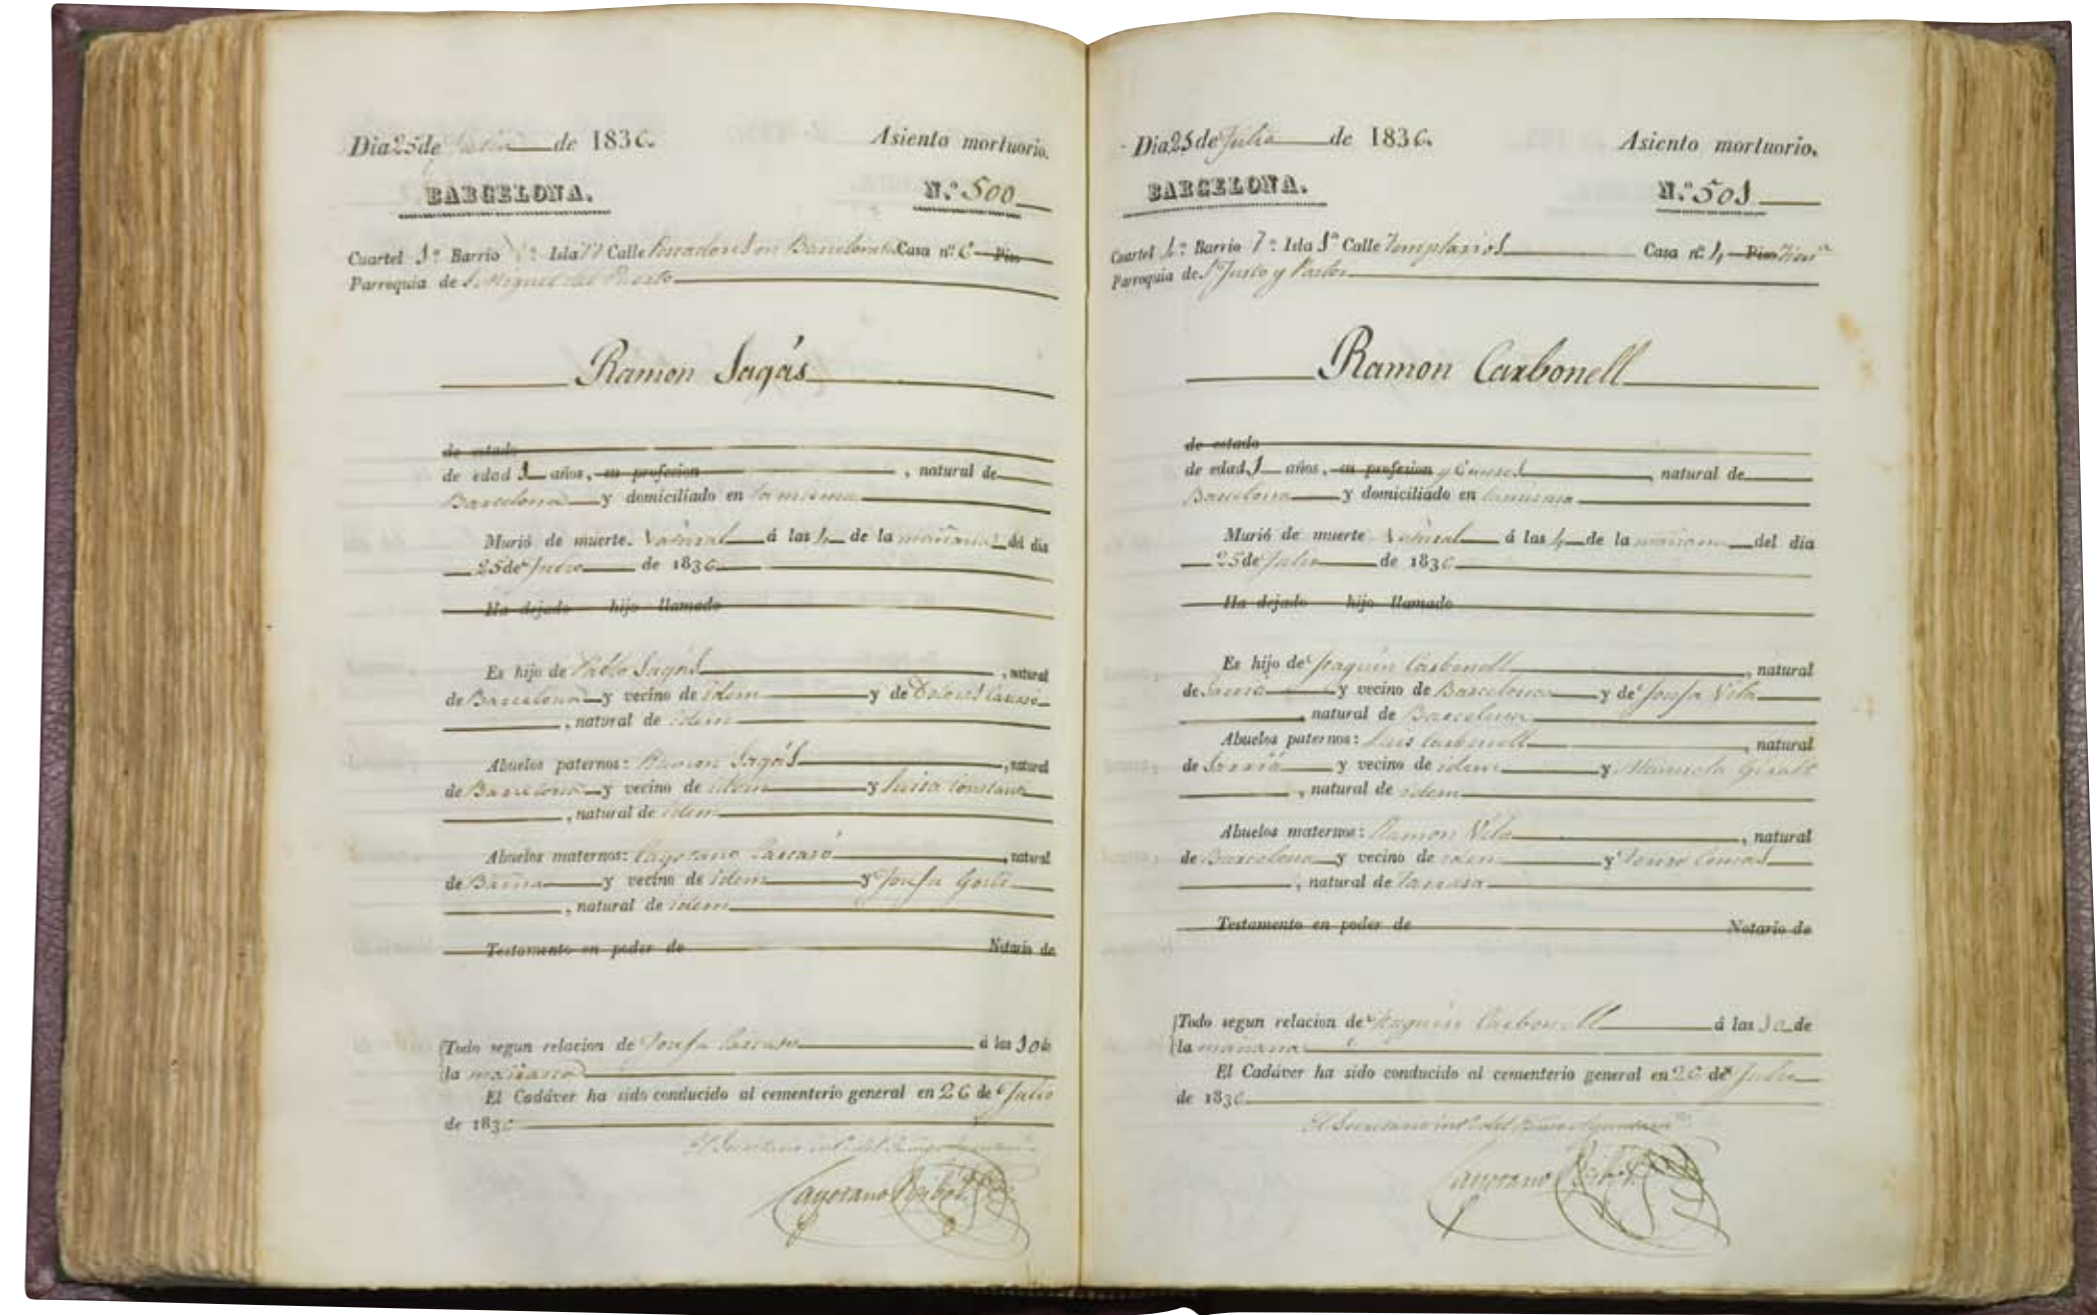 Dia 25 de Julio de 1836. Asiento mortuorio.
BARCELONA. N.º 500
Cuartel 1º Barrio Isla Calle en Barceloneta Casa nº 6 Piso
Parroquia de S. Miguel del Puerto
Ramon Sagás
de estado
de edad 1 años, su profesion , natural de
Barcelona y domiciliado en la misma
Murió de muerte Natural á las 4 de la mañana del dia
25 de Julio de 1836
Ha dejado hijo llamado
Es hijo de Pablo Sagás , natural
de Barcelona y vecino de idem y de Dolores
, natural de idem
Abuelos paternos: Ramon Sagás , natural
de Barcelona y vecino de idem y Luisa
, natural de idem
Abuelos maternos: Cayetano , natural
de Barna y vecino de idem y Josefa
, natural de idem
Testamento en poder de Notario de
Todo segun relacion de Josefa á las 10 de
la mañana
El Cadáver ha sido conducido al cementerio general en 26 de Julio
de 1836
El Secretario intº del
Cayetano Ribot
Dia 25 de Julio de 1836. Asiento mortuorio.
BARCELONA. N.º 501
Cuartel 4º Barrio 7º Isla 1ª Calle Templarios Casa nº 4 Piso
Parroquia de S. Justo y Pastor
Ramon Carbonell
de estado
de edad 1 años, su profesion y 6 meses , natural de
Barcelona y domiciliado en la misma
Murió de muerte Natural á las 4 de la mañana del dia
25 de Julio de 1836
Ha dejado hijo llamado
Es hijo de Joaquin Carbonell , natural
de Sarriá y vecino de Barcelona y de Josefa Vila
, natural de Barcelona
Abuelos paternos: Luis Carbonell , natural
de Sarriá y vecino de idem y Manuela Giralt
, natural de idem
Abuelos maternos: Ramon Vila , natural
de Barcelona y vecino de idem y
, natural de Tarrasa
Testamento en poder de Notario de
Todo segun relacion de Joaquin Carbonell á las 10 de
la mañana
El Cadáver ha sido conducido al cementerio general en 26 de Julio
de 1836
El Secretario intº del
Cayetano Ribot